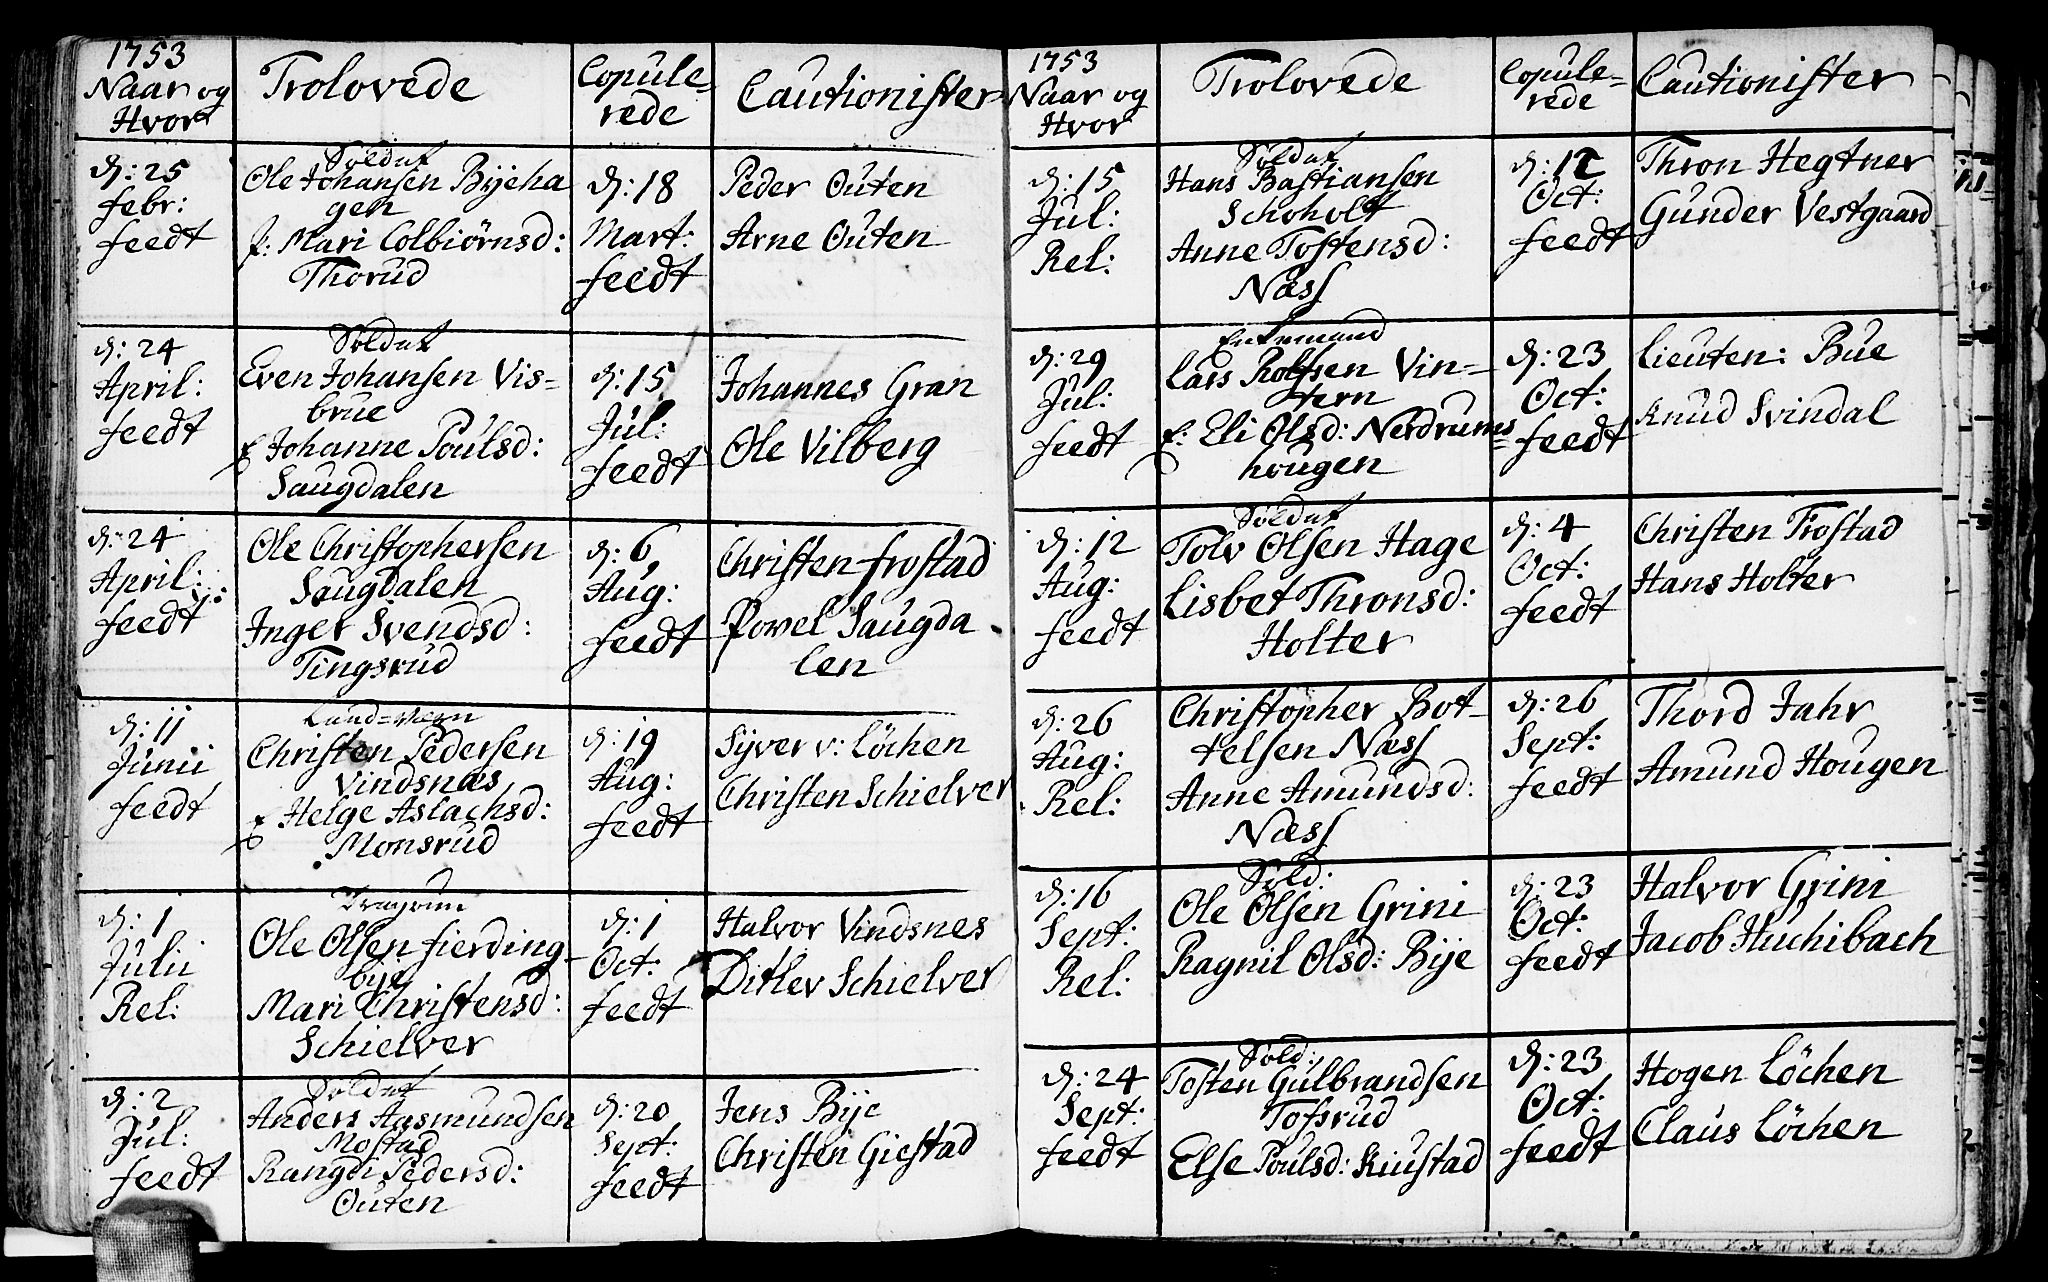 1753
Naar og
Hvor
Trolovede
Copule=
rede
Cautionister
d: 25
Febr:
feedt
Soldat
Ole Johansen Bÿeha
gen
f: Mari Colbiörnsd:
Thorud
d: 18
Mart:
feedt
Peder Outen
Arne Outen
d: 24
April:
feedt
Soldat
Even Johansen Vis=
brue
f Johanne Poulsd:
Saugdalen
d: 15
Jul:
feedt
Johannes Gran
Ole Vilberg
d: 24
April:
feedt
Ole Christophersen
Saugdalen
Inger Svendsd:
Tingsrud
d: 6
Aug:
feedt
Christen Frostad
Povel Saugda
len
d: 11
Junii
feedt
Land=Værn
Christen Pedersen
Vindsnæs
f Helge Aslachsd:
Monsrud
d: 19
Aug:
feedt
Sÿver v: Löchen
Christen Schielver
d: 1
Julii
Rel:
Dragoun
Ole Olsen Fierding=
bÿe
Mari Christensd:
Schielver
d: 1
Oct:
feedt
Halvor Vindsnes
Ditlev Schielver
d: 2
Jul:
feedt
Soldat
Anders Aasmundsen
Mostad
Rangdi Pedersd:
Outen
d: 20
Sept:
feedt
Jens Bÿe
Christen Giestad
1753
Naar og
Hvor
Trolovede
Copule=
rede
Cautionister
d: 15
Jul:
Rel:
Soldat
Hans Bastiansen
Schoholt
Anne Tostensd:
Næss
d: 12
Oct:
feedt
Thron Hegtner
Gunder Vestgaard
d: 29
Jul:
feedt
Enkemand
Lars Rolfsen Vin=
tern
f: Eli Olsd: Nerdrums=
hougen
d: 23
Oct:
feedt
Lieuten: Bue
Knud Svindal
d: 12
Aug:
feedt
Soldat
Tolv Olsen Hage
Lisbet Thronsd:
Holter
d: 4
Oct:
feedt
Christen Frostad
Hans Holter
d: 26
Aug:
Rel:
Christopher Bot=
telsen Næss
Anne Amundsd:
Næss
d: 26
Sept:
feedt
Thord Jahr
Amund Hougen
d: 16
Sept:
Rel:
Sold:
Ole Olsen Grini
Ragnil Olsd: Bÿe
d: 23
Oct:
feedt
Halvor Grini
Jacob Huchibach
d: 24
Sept:
feedt
Sold:
Tosten Gulbrandsen
Tofsrud
Else Poulsd: Kiustad
d: 23
Oct:
feedt
Hogen Löchen
Claus Löchen